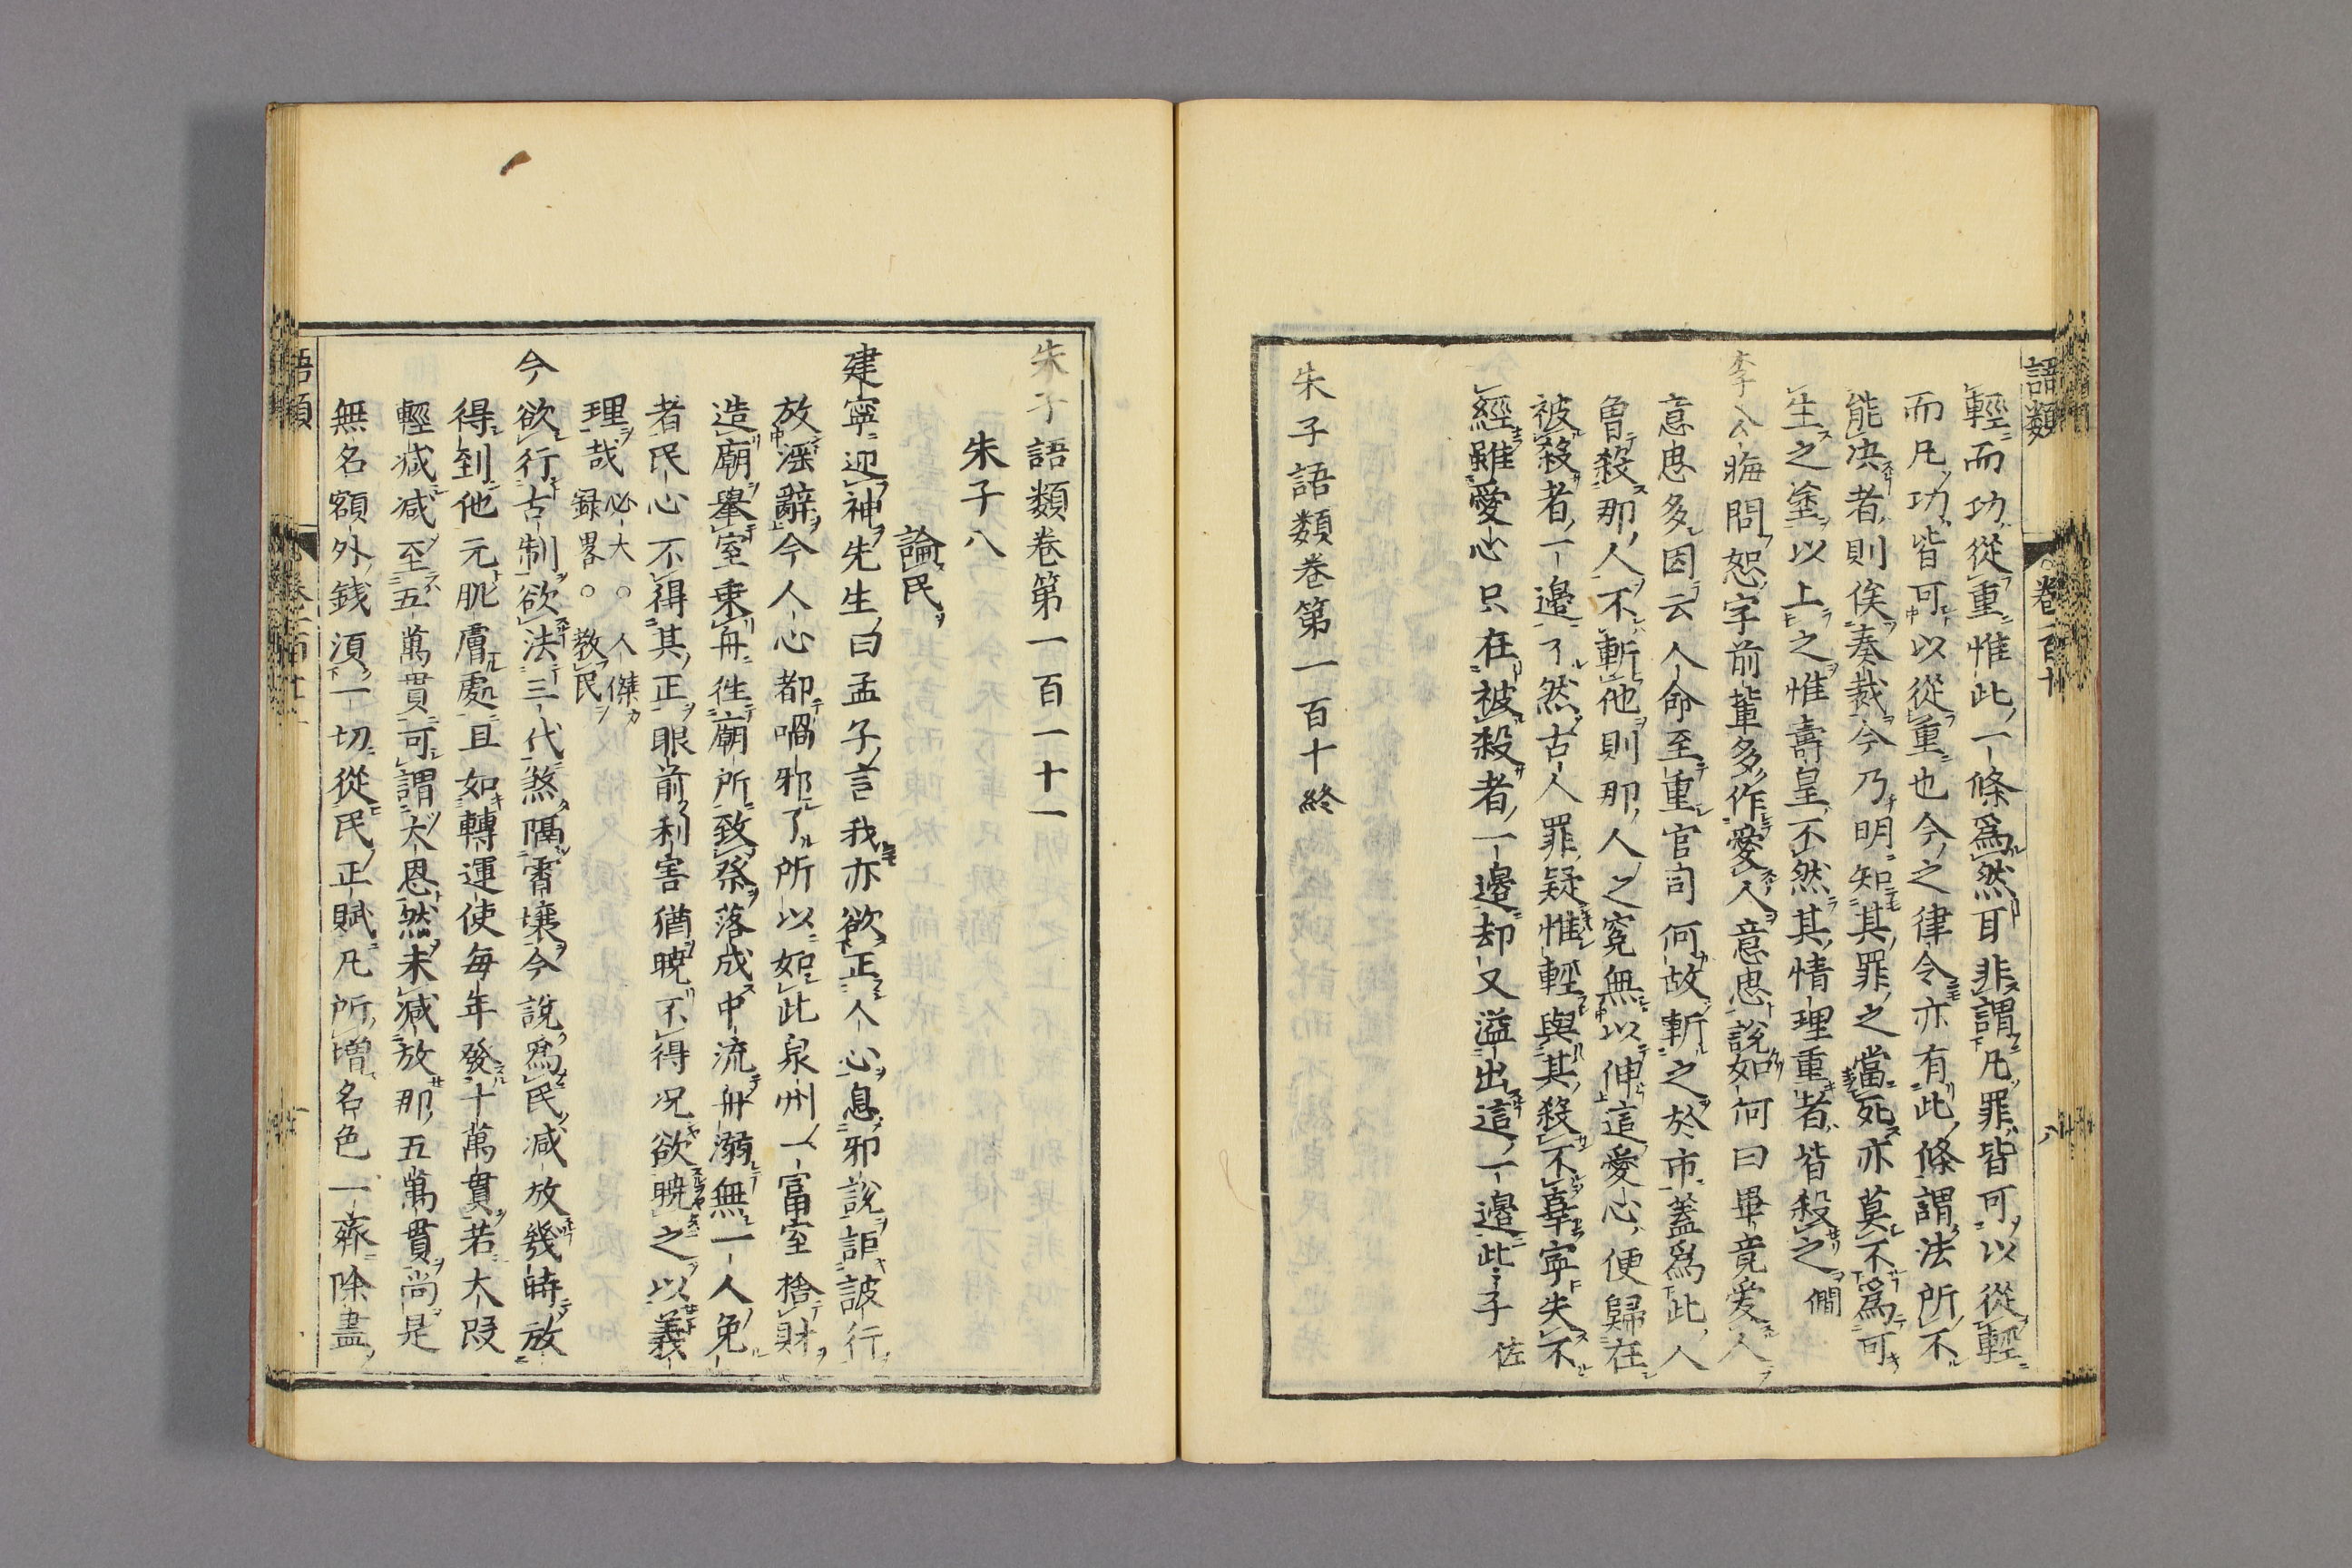 語類
卷一百十
八
輕而功從重惟此一條爲然耳非謂凡罪皆可以從輕
而凡功皆可以從重也今之律令亦有此條謂法所不
能决者則俟奏裁今乃明知其罪之當死亦莫不爲可
生之塗以上之惟壽皇不然其情理重者皆殺之 僩
李公晦問恕字前輩多作愛人意思說如何曰畢竟愛人
意思多因云人命至重官司何故斬之於市蓋爲此人
曾殺那人不斬他則那人之寃無以伸這愛心便歸在
被殺者一邉了然古人罪疑惟輕與其殺不辜寧失不
經雖愛心只在被殺者一邉却又溢出這一邉此子 佐
朱子語類卷第一百十終
朱子語類卷第一百一十一
朱子八
論民
建寧迎神先生曰孟子言我亦欲正人心息邪說詎詖行
放滛辭今人心都喎邪了所以如此泉州一富室捨財
造廟舉室乘舟徃廟所致祭落成中流舟溺無一人免
者民心不得其正眼前利害猶曉不得况欲曉之以義
理哉 必大○人傑錄畧○教民
今欲行古制欲法三代煞隔霄壤今說爲民减放幾時放
得到他元肌膚處且如轉運使每年發十萬貫若大段
輕减减至五萬貫可謂大恩然未减放那五萬貫尚是
無名額外錢須一切從民正賦凡所増名色一齊除盡
語類